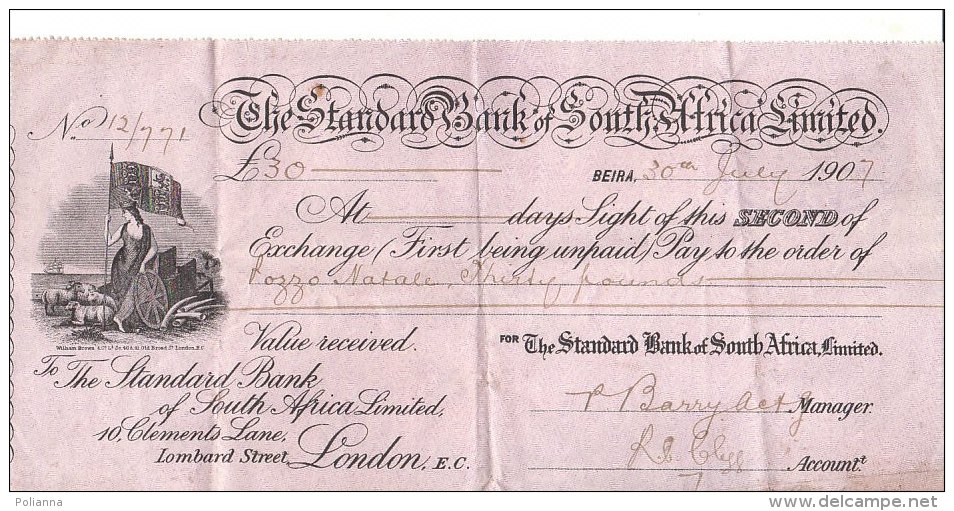 The Standard Bank of South Africa Limited.
No 12/771
£30 BEIRA, 30th July 1907
At days Sight of this SECOND of
Exchange (First being unpaid) Pay to the order of
Pozzo Natale, Thirty pounds
Value received.
FOR The Standard Bank of South Africa, Limited.
William Brown & Co. Ld. Old Broad St. London, E.C.
To The Standard Bank
of South Africa Limited,
10, Clements Lane,
Lombard Street, London, E.C.
Barry Actg Manager.
Accountt.
Polianna
www.delcampe.net